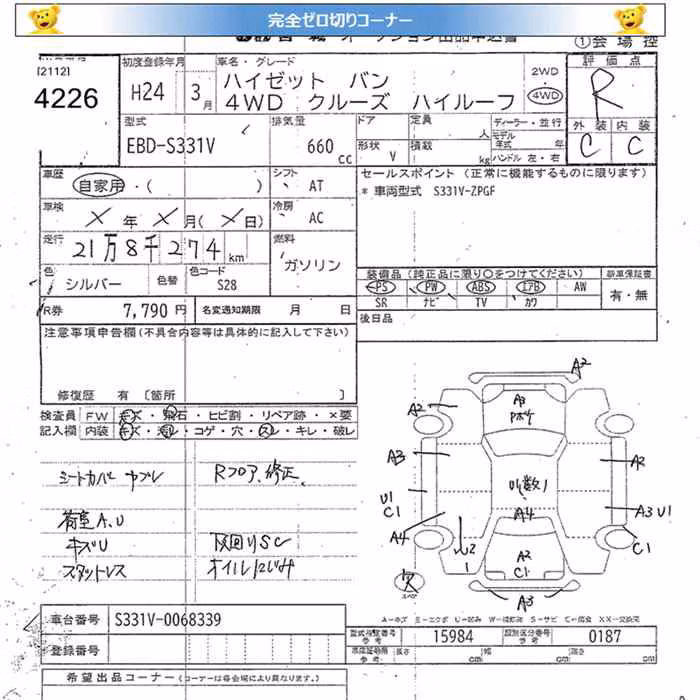 完全ゼロ切りコーナー
①会場控
[2112]
4226
初度登録年月
H24 3月
車名・グレード
ハイゼット バン
4WD クルーズ ハイルーフ
2WD
4WD
評価点
R
外装 内装
C C
型式
EBD-S331V
排気量
660 cc
ドア
形状 V
定員 人
積載 kg
ディーラー・並行
モデル年式 年
ハンドル 左・右
車歴
自家用・( )
シフト
AT
車検
X年X月(X日)
冷房
AC
走行
21万8千274km
燃料
ガソリン
色
シルバー
色替
色コード
S28
セールスポイント (正常に機能するものに限ります)
* 車両型式 S331V-ZPGF
装備品 (純正品に限り○をつけてください)
新車保証書
PS PW ABS エアB AW
SR ナビ TV カワ
有・無
R券 7,790円
名変通知期限 月 日
後日品
注意事項申告欄(不具合内容等は具体的に記入して下さい)
修復歴 有 〔箇所 〕
検査員 FW キズ・飛石・ヒビ割・リペア跡・×要
記入欄 内装 キズ・汚れ・コゲ・穴・スレ・キレ・破レ
シートカバー ヤブレ
Rフロア修正
荷室A、U
キズU
スタットレス
下回りSC
オイルにじみ
A2
A2
A3
U1
C1
A4
A2
A3 U1
C1
A4
A2
C1
A3
欠
車台番号 S331V-0068339
登録番号
A=キズ E=エクボ U=凹み W=補修跡 S=サビ C=腐食 XX=交換済
型式指定番号 参考 15984
類別区分番号 参考 0187
長さ cm
幅 cm
高さ cm
希望出品コーナー(コーナーは各会場により異なります。)